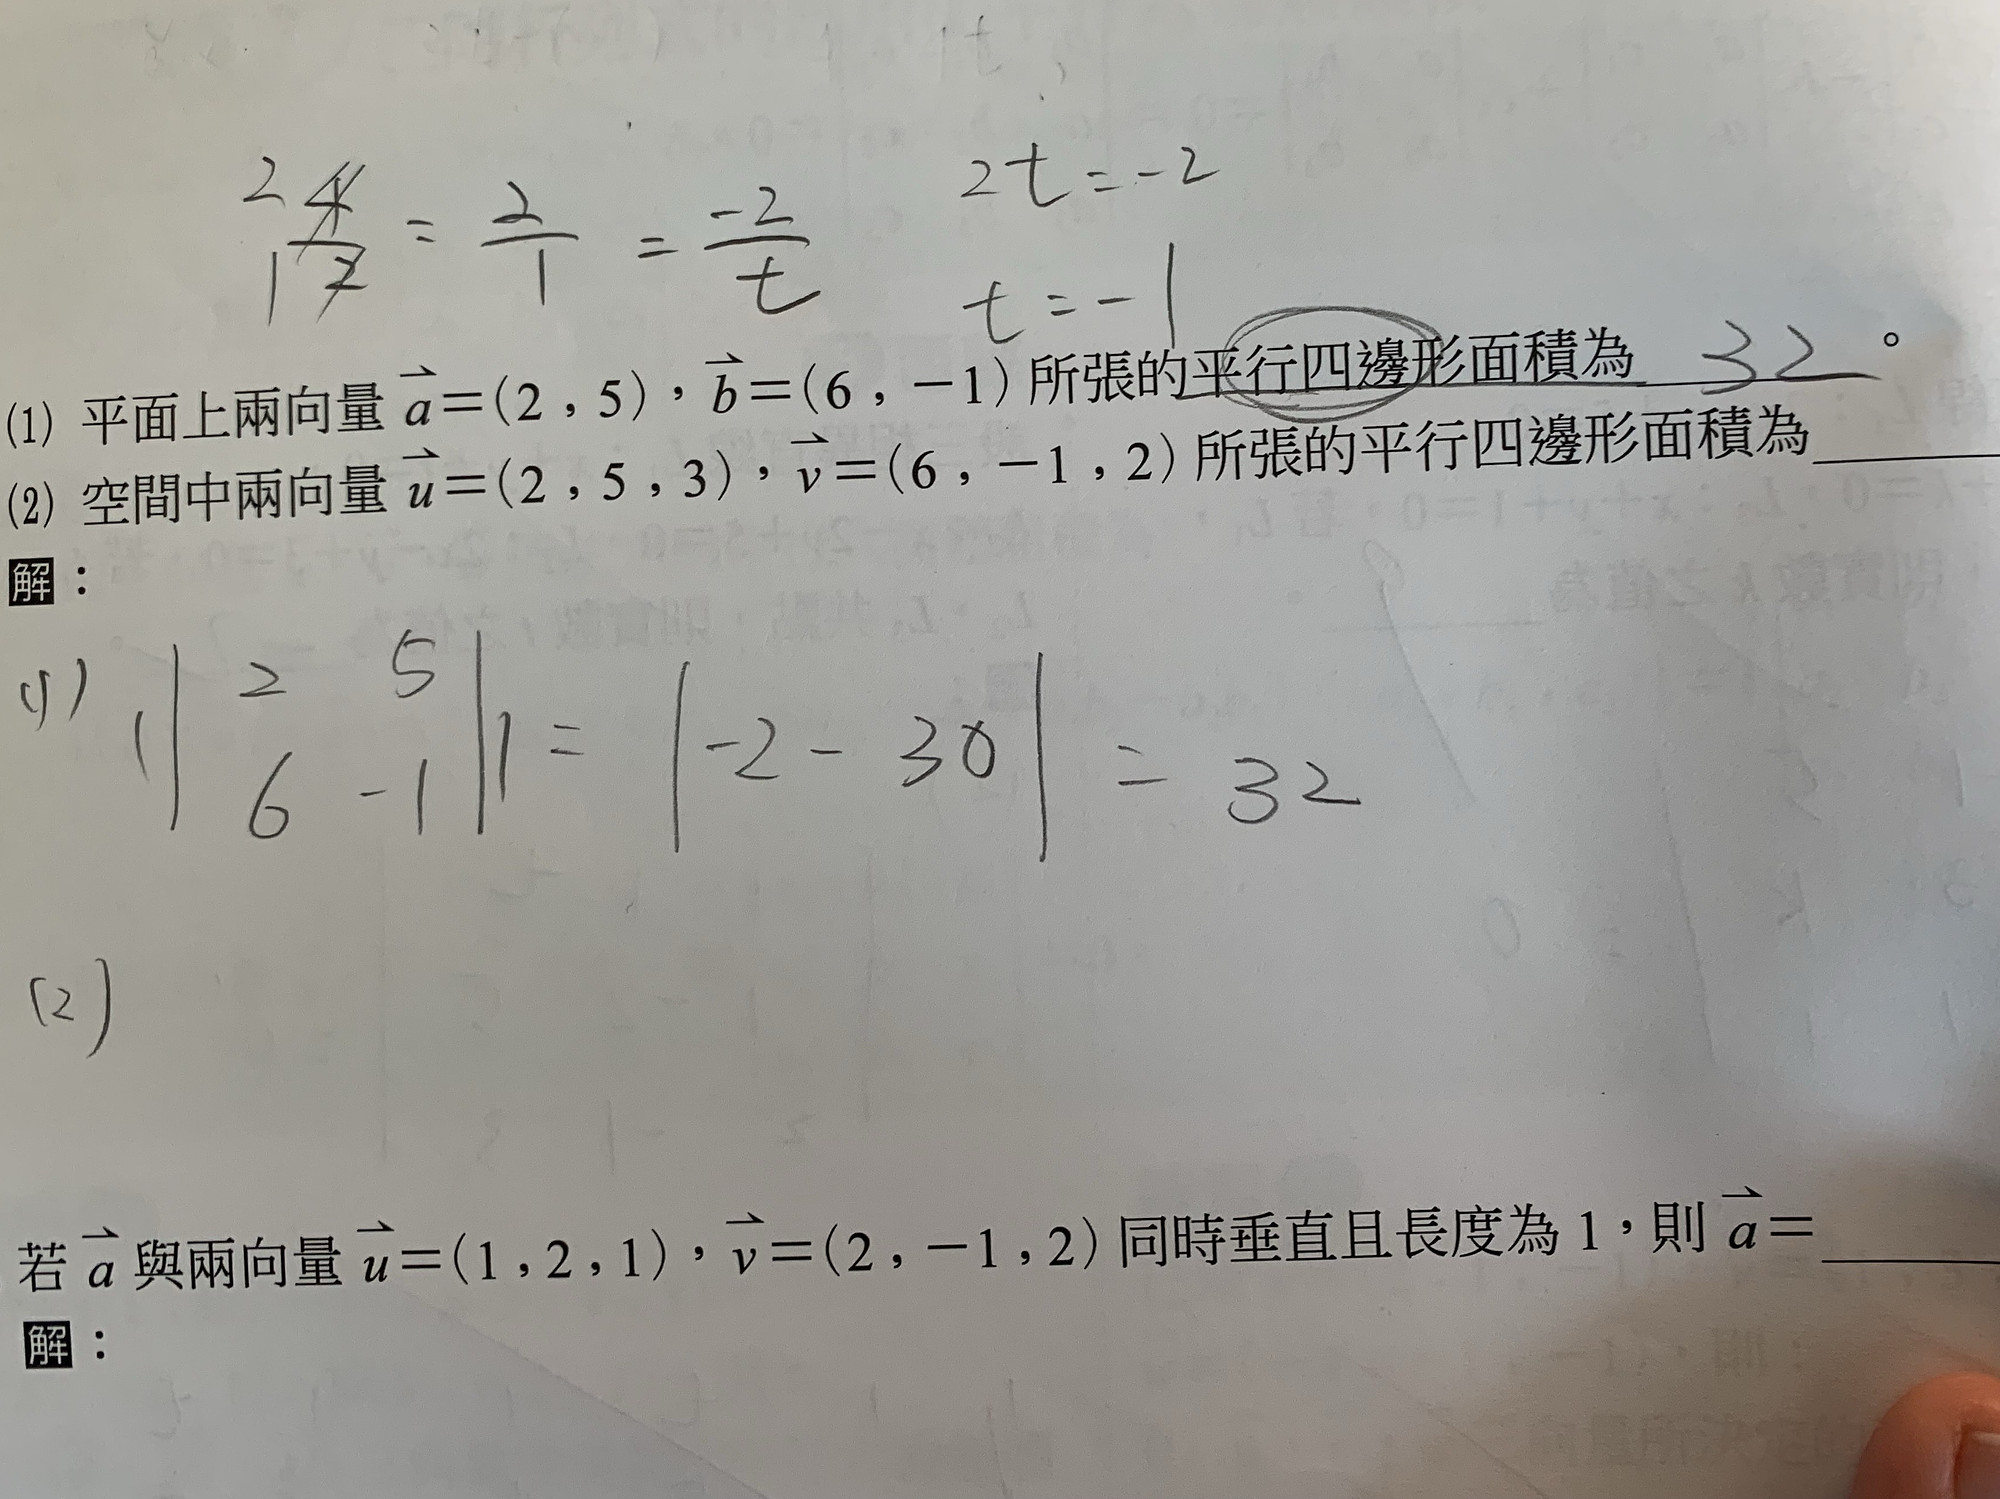 2 4/2 1 = 2/1 = -2/t
2t = -2
t = -1
(1) 平面上兩向量 a⃗=(2 , 5)，b⃗=(6 , −1) 所張的平行四邊形面積為 32 。
(2) 空間中兩向量 u⃗=(2 , 5 , 3)，v⃗=(6 , −1 , 2) 所張的平行四邊形面積為
解：
(1) | | 2 5 ; 6 -1 | | = | -2 - 30 | = 32
(2)
若 a⃗ 與兩向量 u⃗=(1 , 2 , 1)，v⃗=(2 , −1 , 2) 同時垂直且長度為 1，則 a⃗=
解：